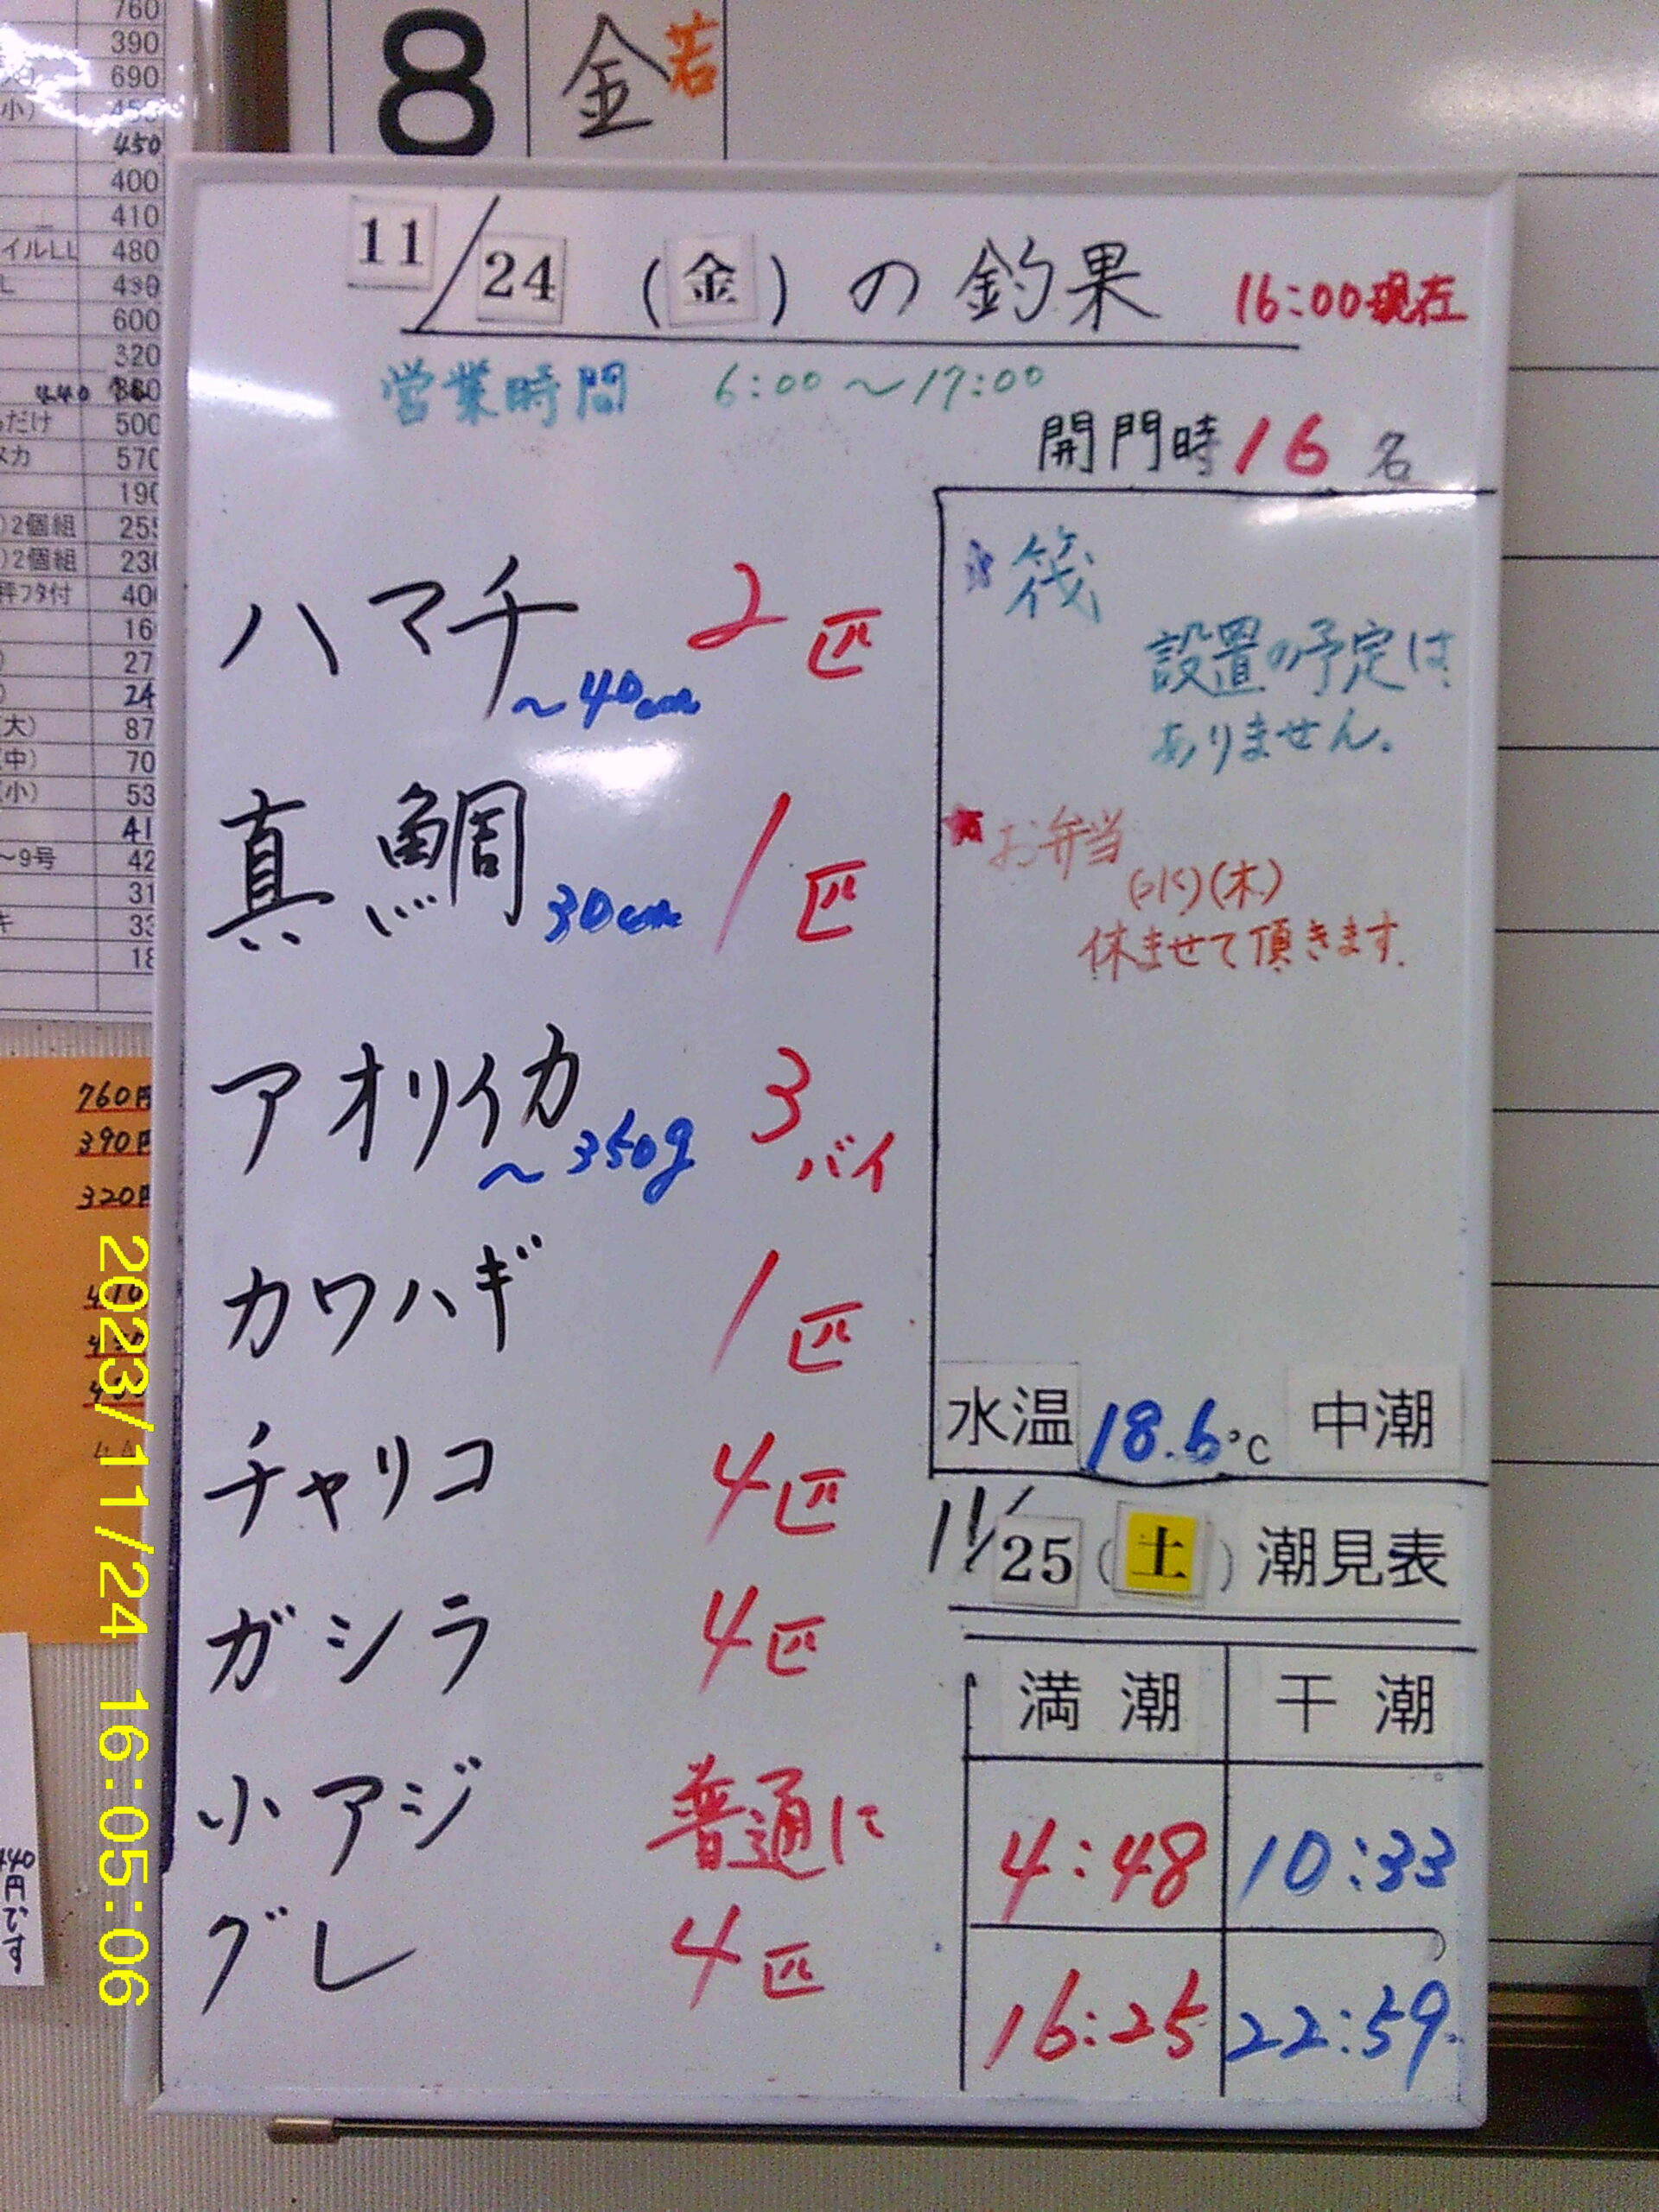 760
390
690
小）
450
450
400
410
イルLL 480
L 490
600
320
440
だけ 500
570
190
）2個組
）2個組
枠フタ付
（大） 87
（中） 70
（小） 53
41
～9号 42
31
33
18
760円
390円
320円
440円です
8 金 若
11/24（金）の釣果 16:00現在
営業時間 6:00～17:00
開門時16名
ハマチ ～40cm 2匹
真鯛 30cm 1匹
アオリイカ ～350g 3バイ
カワハギ 1匹
チャリコ 4匹
ガシラ 4匹
小アジ 普通に
グレ 4匹
筏
設置の予定は
ありません.
★お弁当
(水)(木)
休ませて頂きます.
水温 18.6℃ 中潮
11/25（土）潮見表
満潮 干潮
4:48 10:33
16:25 22:59
2023/11/24 16:05:06